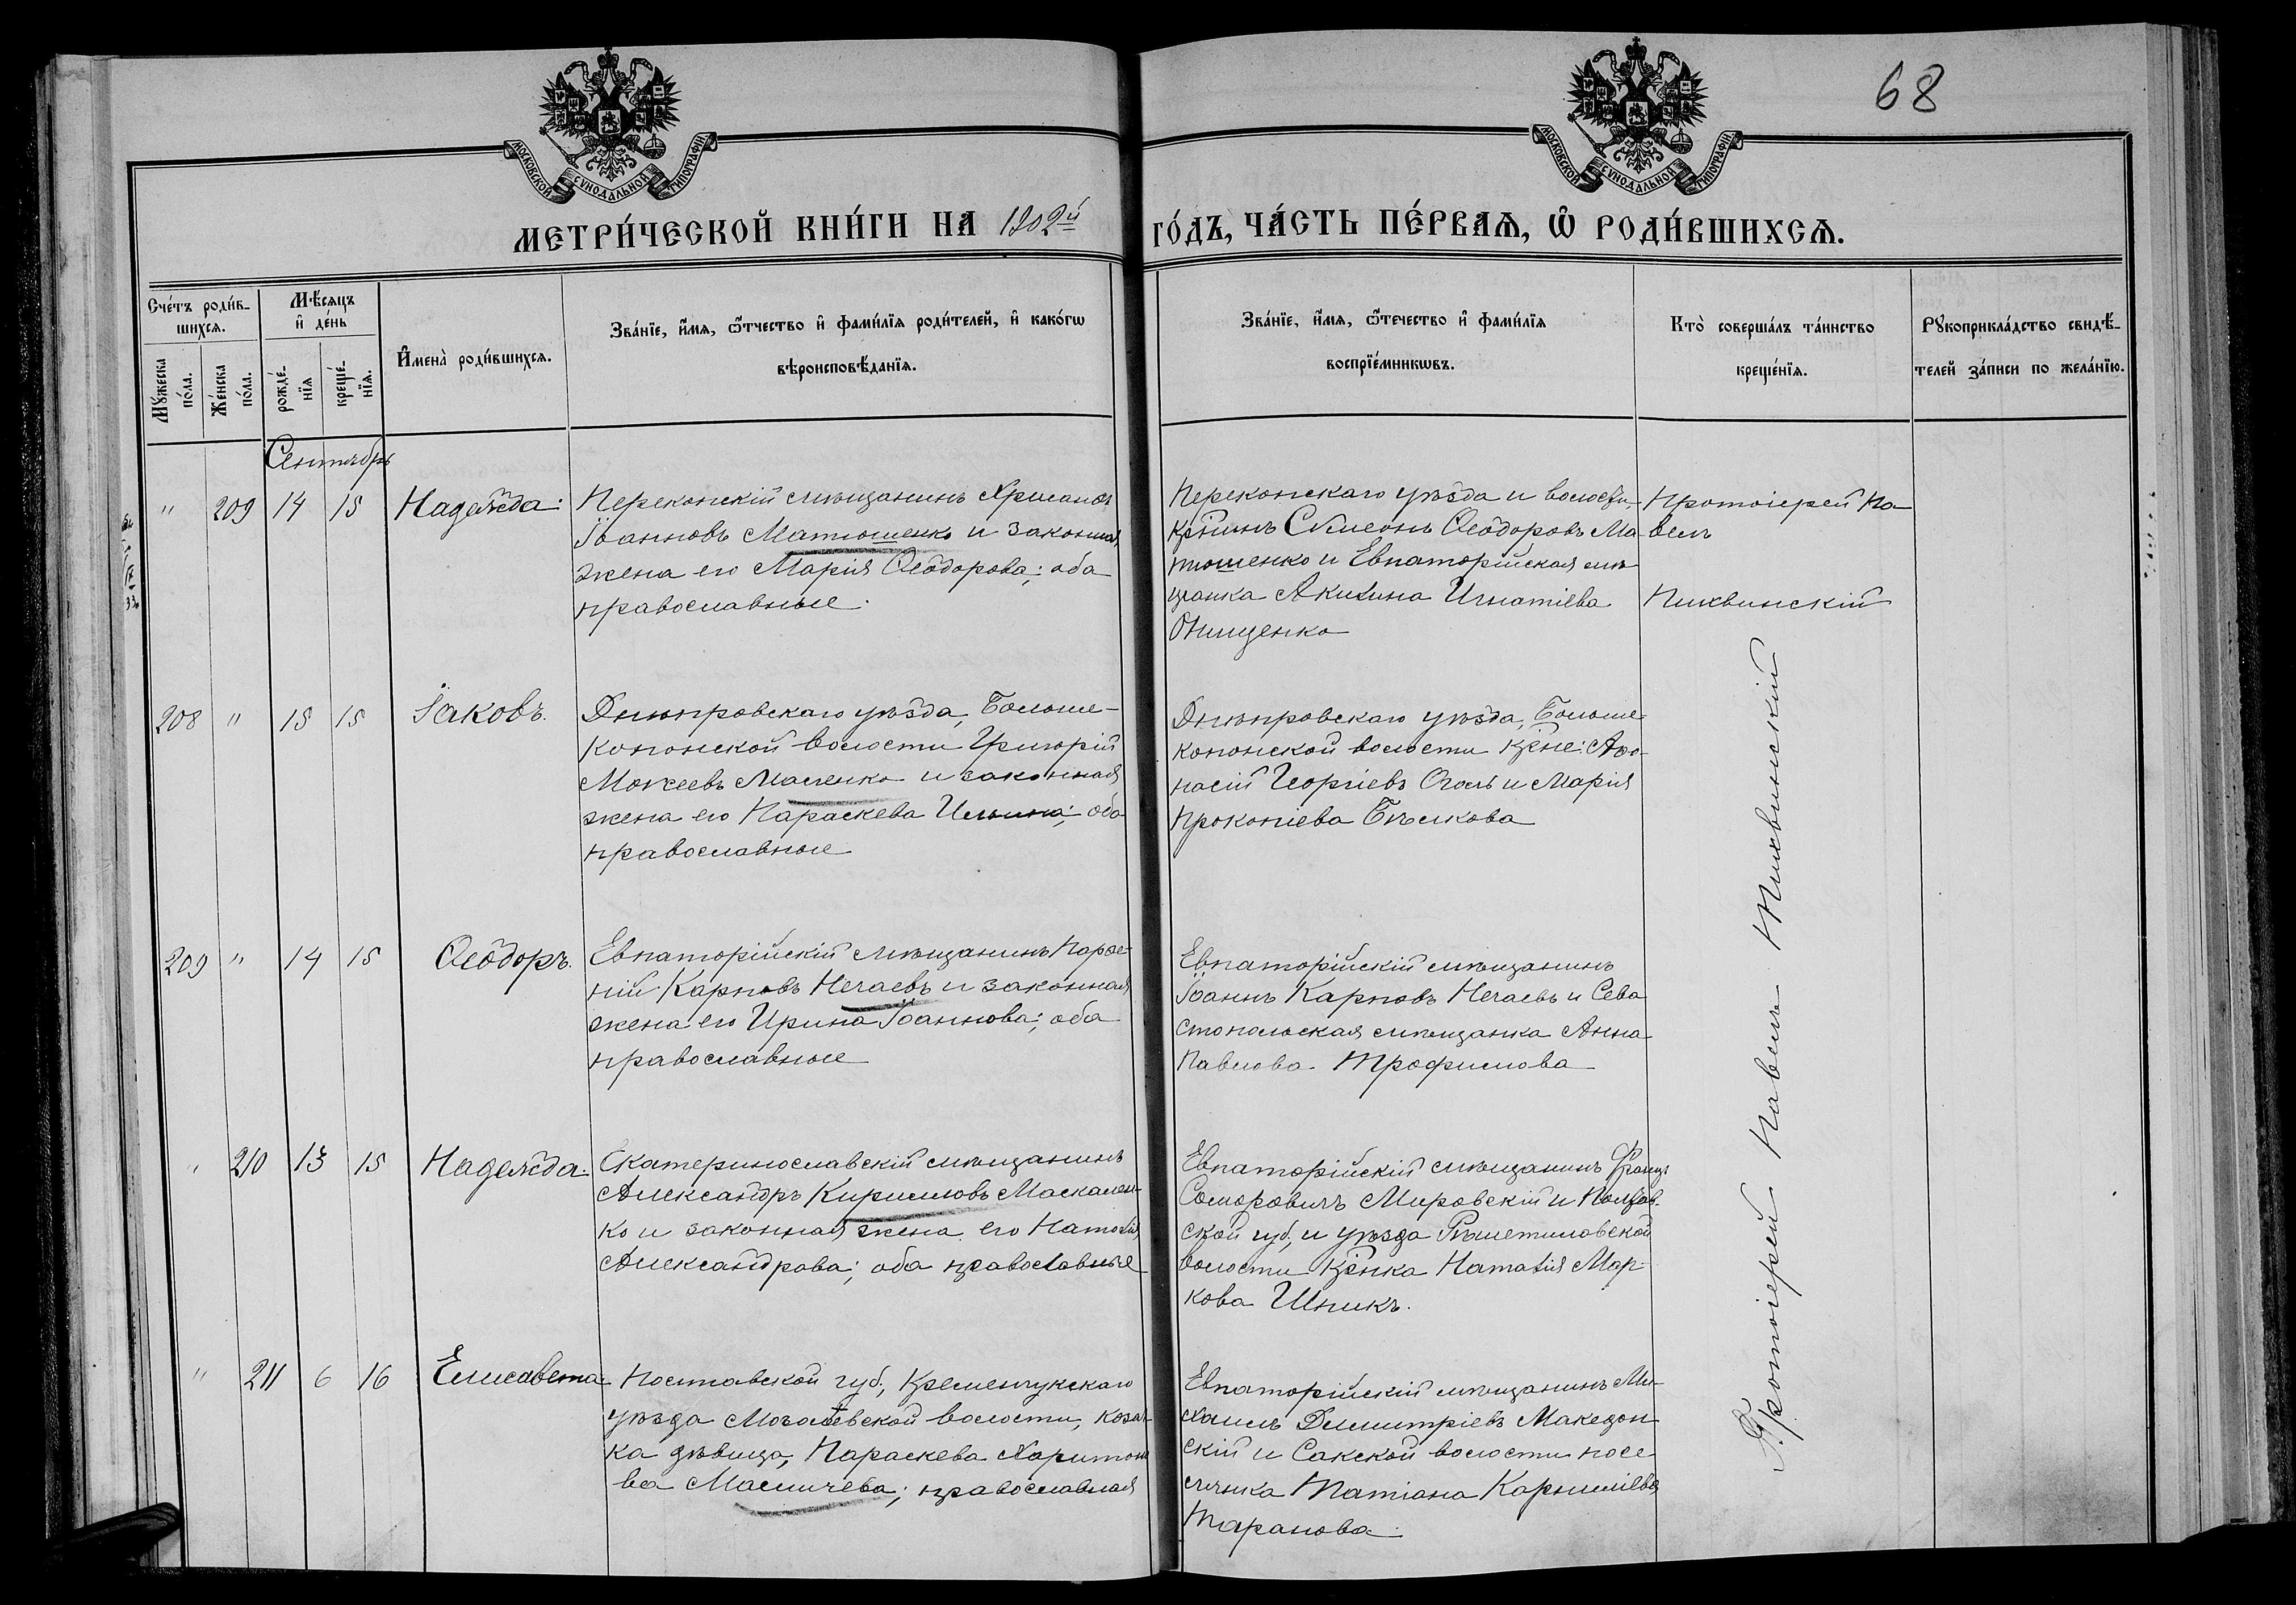 68
МОСКОВСКОЙ СѴНОДАЛЬНОЙ ТИПОГРАФІИ
МОСКОВСКОЙ СѴНОДАЛЬНОЙ ТИПОГРАФІИ
МЕТРИ́ЧЕСКОЙ КНИ́ГИ НА 1902й ГО́ДЪ, ЧА́СТЬ ПЕ́РВАѦ, Ѡ҆ РОДИ́ВШИХСѦ.
Сче́тъ роди́в-
шихсѧ.
Мꙋ́жеска
по́ла.
Же́нска
по́ла.
Мѣ́сѧцъ
и҆ де́нь
рожде́-
нїѧ
креще́-
нїѧ.
И҆мена̀ роди́вшихсѧ.
Зва́нїе, и҆́мѧ, ѻ҆́тчество и҆ фами́лїѧ роди́телей, и҆ како́гѡ
вѣроисповѣ́данїѧ.
Зва́нїе, и҆́мѧ, ѻ҆́течество и҆ фами́лїѧ
воспрїе́мникѡвъ.
Кто̀ соверша́лъ та́инство
креще́нїѧ.
Рꙋкоприкла́дство свидѣ́-
телей за́писи по жела́нїю.
Сентябрь
" 209 14 15 Надежда.
Перекопскій мѣщанинъ Хрисанѳъ
Іоанновъ Матюшенко и законная
жена его Марія Ѳеодорова; оба
православные.
Перекопскаго уѣзда и волости,
кр̃нинъ Сѵмеонъ Ѳеодоровъ Ма-
тюшенко и Евпаторійская мѣ-
щанка Акилина Игнатіева
Онищенко
Протоіерей Па-
велъ
Тихвинскій
208 " 15 15 Іаковъ.
Днѣпровскаго уѣзда, Больше-
Копанской волости Григорій
Мокеевъ Масленко и законная
жена его Параскева Ильина; оба
православные
Днѣпровскаго уѣзда, Больше-
копанской волости кр̃не: Аѳа-
насій Георгіевъ Оголь и Марія
Прокопіева Бѣлкова
209 " 14 15 Ѳеодоръ.
Евпаторійскій мѣщанинъ Парѳе-
ній Карповъ Нечаевъ и законная
жена его Ирина Іоаннова; оба
православные
Евпаторійскій мѣщанинъ
Іоаннъ Карповъ Нечаевъ и Сева
стопольская мѣщанка Анна
Павлова Трофимова
" 210 13 15 Надежда.
Екатеринославскій мѣщанинъ
Александръ Кирилловъ Маскален-
ко и законная жена его Наталія
Александрова; оба православные
Евпаторійскій мѣщанинъ Францъ
Мировскій и Полтав-
ской губ, и уѣзда Рѣшетиловской
волости кр̃нка Наталія Мар-
кова Шпикъ.
" 211 6 16 Елисавета
Полтавской губ, Кременчукскаго
уѣзда волости, козач-
ка дѣвица, Параскева Харитоно
ва Масличева; православная
Евпаторійскій мѣщанинъ Ми-
хаилъ Димитріевъ Македон-
скій и Сакской волости посе-
лянка Татіана Корниліева
Таранова.
Протоіерей Павелъ Тихвинскій